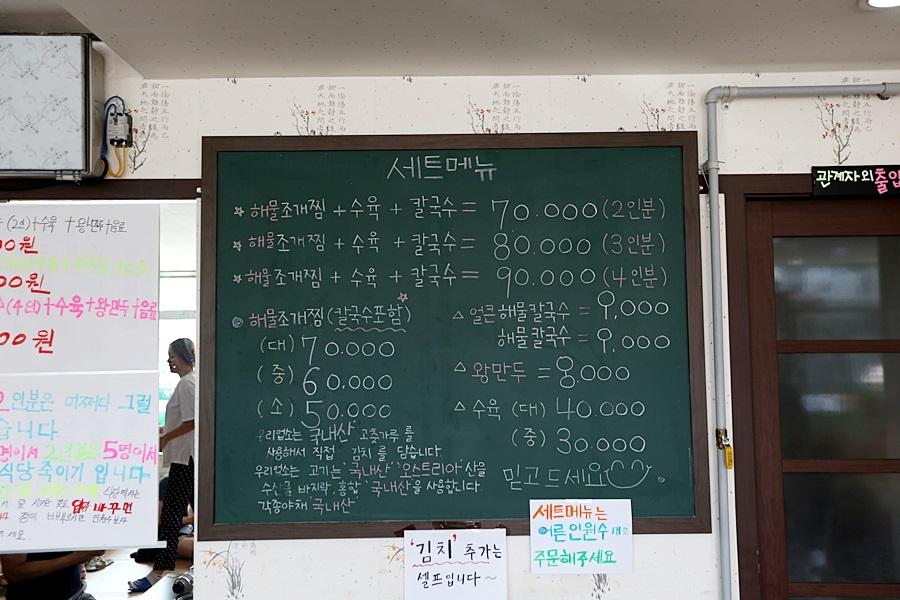 세트메뉴
☆ 해물조개찜 + 수육 + 칼국수 = 70.000 (2인분)
☆ 해물조개찜 + 수육 + 칼국수 = 80.000 (3인분)
☆ 해물조개찜 + 수육 + 칼국수 = 90.000 (4인분)
◎ 해물조개찜 (칼국수포함)
(대) 70.000
(중) 60.000
(소) 50.000
△ 얼큰해물칼국수 = 9,000
해물칼국수 = 9,000
△ 왕만두 = 8.000
△ 수육 (대) 40.000
(중) 30.000
우리업소는 국내산 고춧가루를
사용해서 직접 김치를 담습니다
우리업소는 고기는 "국내산" "오스트리아"산을
수산물 바지락. 홍합 "국내산"을 사용합니다
각종야채 "국내산"
믿고드세요
'김치' 추가는
셀프입니다~
세트메뉴는
어른인원수대로
주문해주세요
관계자외출입
(2인)+수육 +왕만두+음료
00원
00원
(4인)+수육+왕만두+음료
00원
인분은 어쩌다 그럴
습니다
5명이서
식당죽이기 입니다
바꾸면